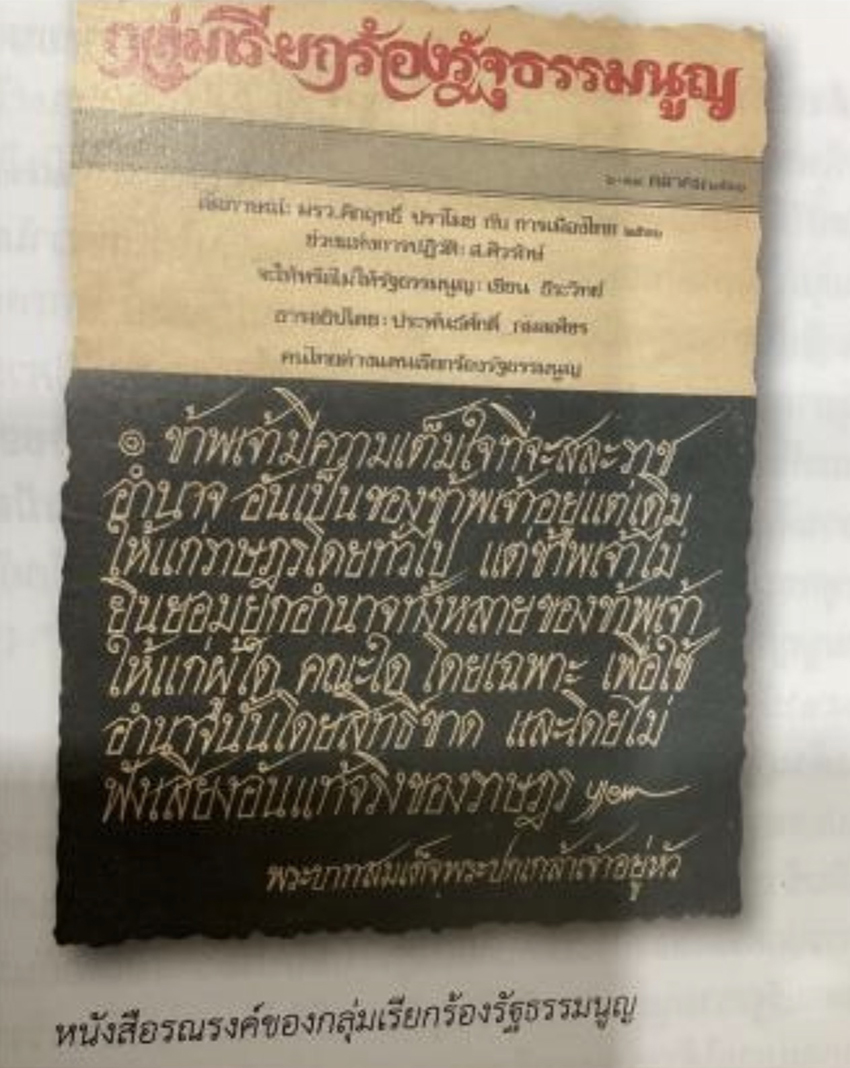 กลุ่มเรียกร้องรัฐธรรมนูญ
๖-๑๓ ตุลาคม ๒๕๑๖
สัมภาษณ์: มรว.คึกฤทธิ์ ปราโมช กับ การเมืองไทย ๒๕๑๖
ช่วงแห่งการปฏิวัติ: ส.ศิวรักษ์
จะให้หรือไม่ให้รัฐธรรมนูญ: เขียน ธีระวิทย์
อารยธิปไตย: ประพันธ์ศักดิ์ กมลเพ็ชร
คนไทยต่างแดนเรียกร้องรัฐธรรมนูญ
๏ ข้าพเจ้ามีความเต็มใจที่จะสละราช
อำนาจ อันเป็นของข้าพเจ้าอยู่แต่เดิม
ให้แก่ราษฎรโดยทั่วไป แต่ข้าพเจ้าไม่
ยินยอมยกอำนาจทั้งหลายของข้าพเจ้า
ให้แก่ผู้ใด คณะใด โดยเฉพาะ เพื่อใช้
อำนาจนั้นโดยสิทธิ์ขาด และโดยไม่
ฟังเสียงอันแท้จริงของราษฎร
พระบาทสมเด็จพระปกเกล้าเจ้าอยู่หัว
หนังสือรณรงค์ของกลุ่มเรียกร้องรัฐธรรมนูญ